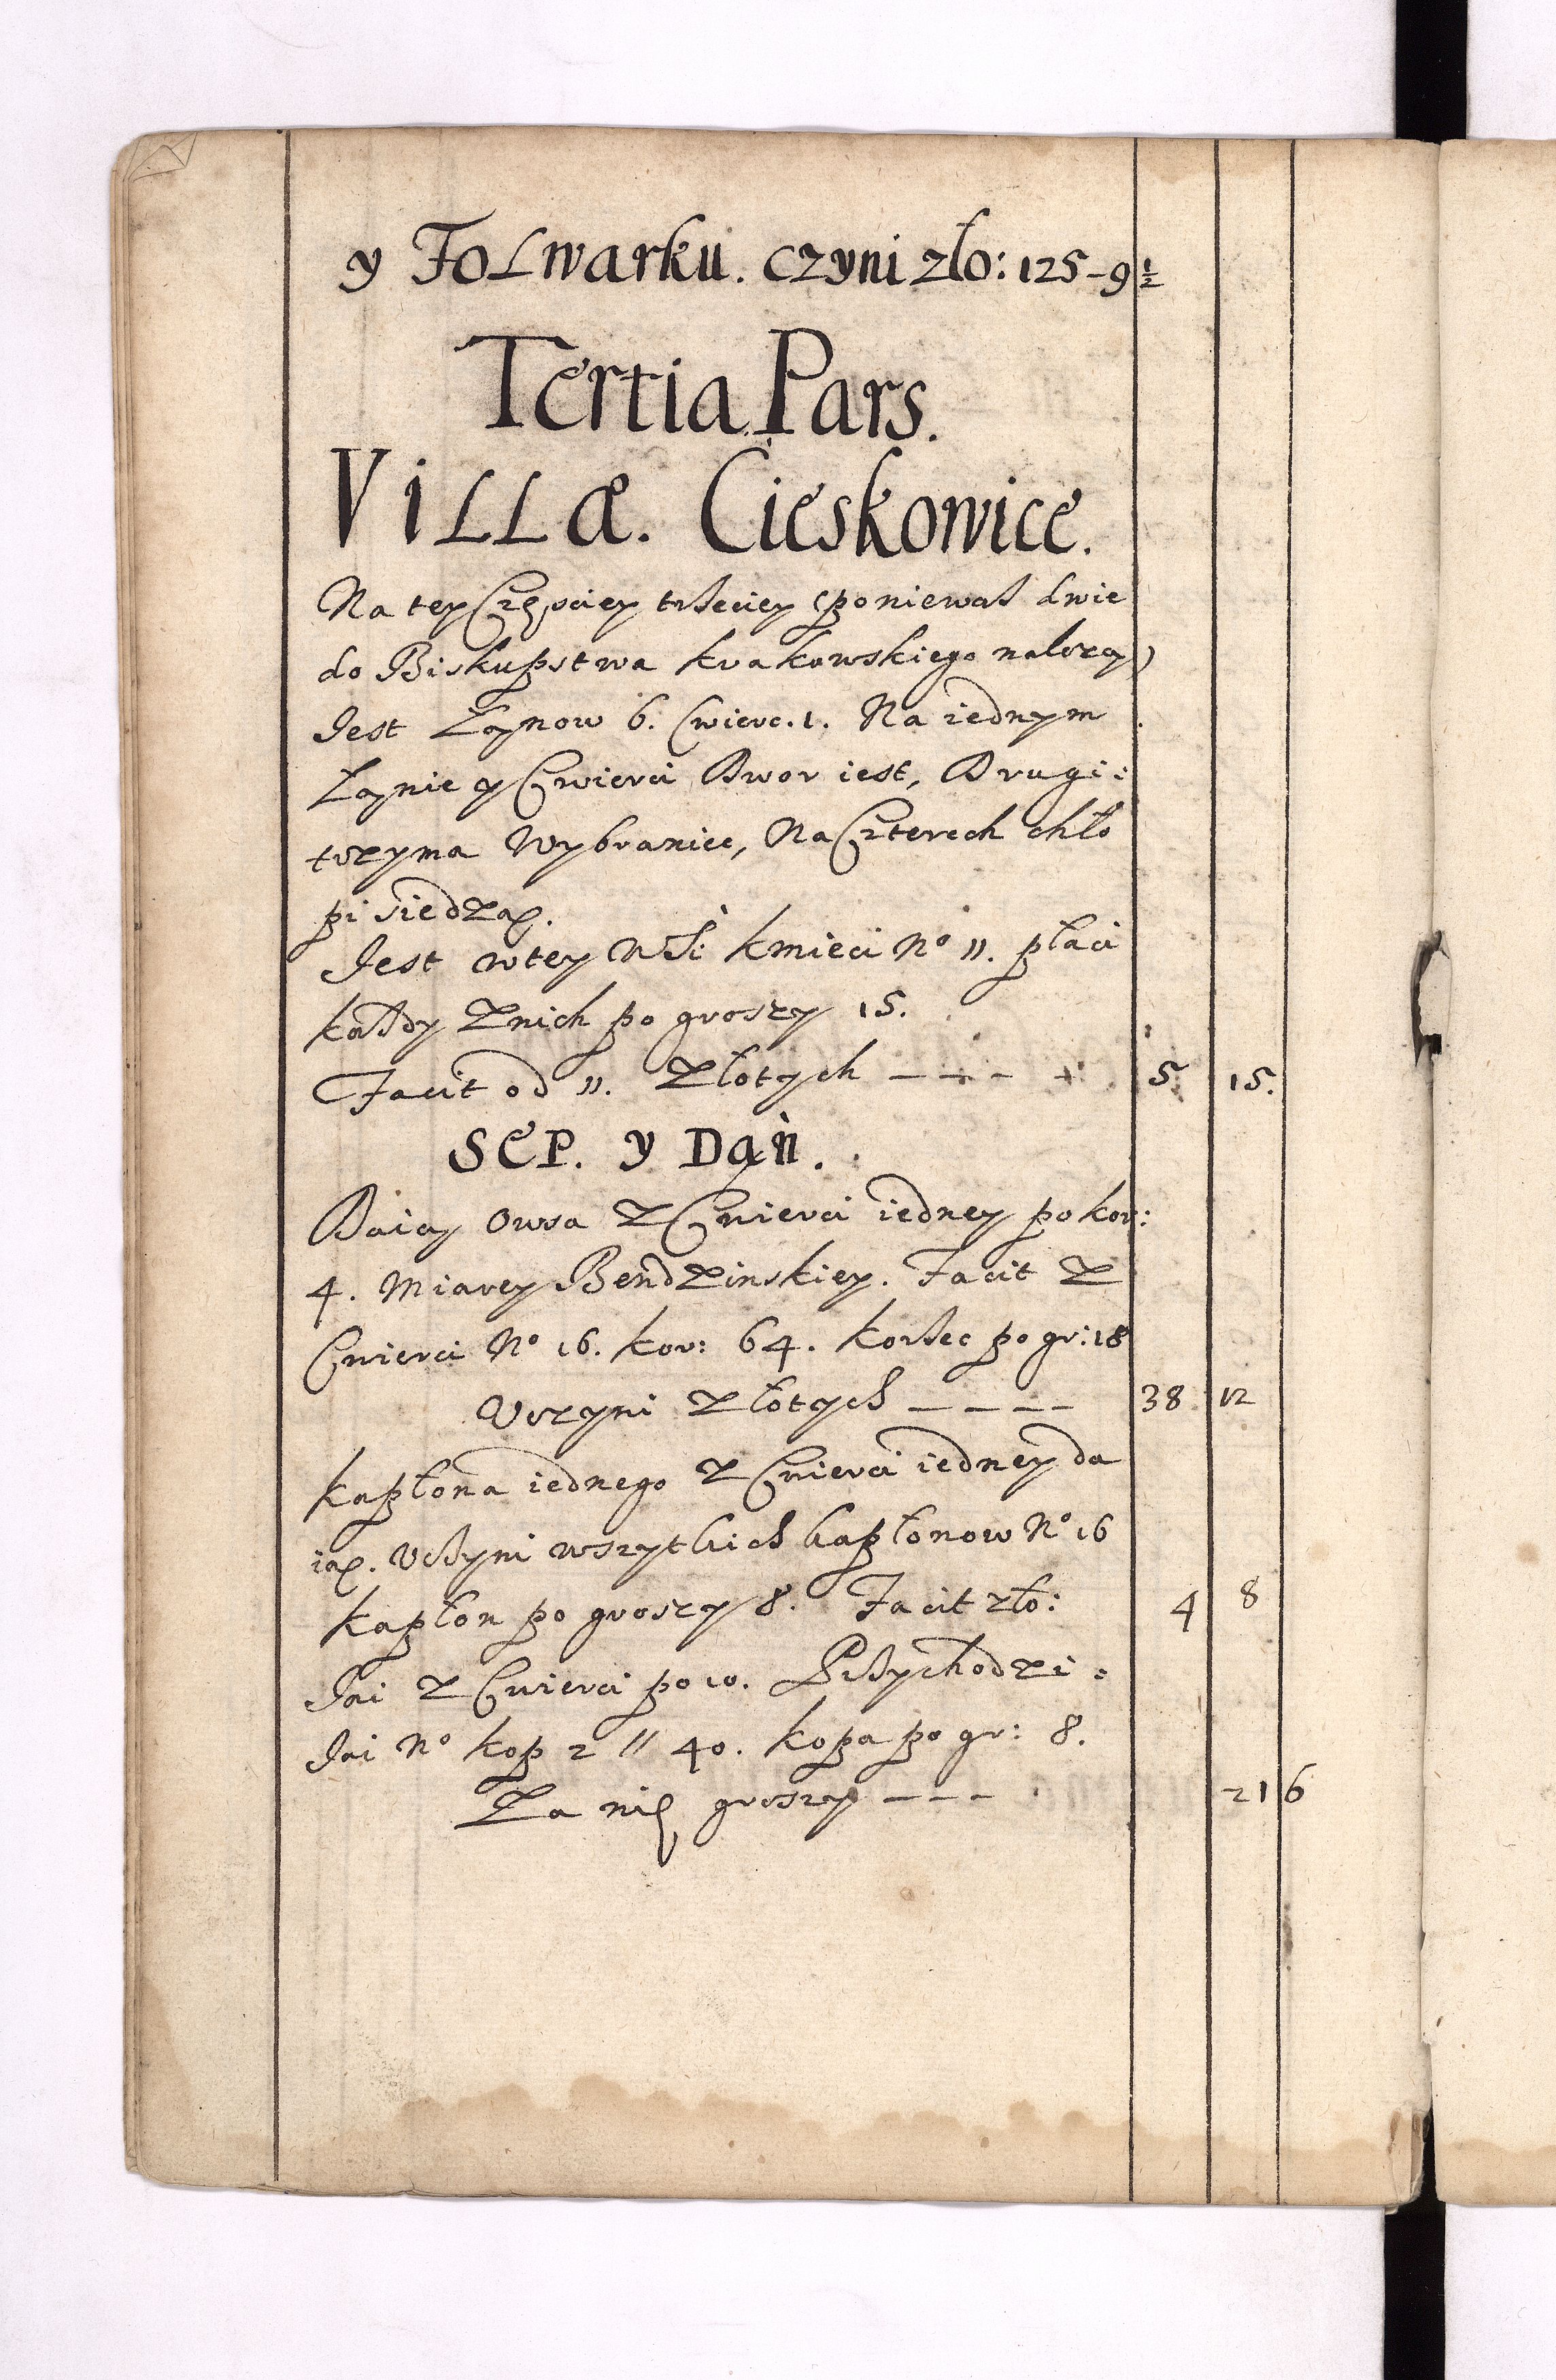 y Folwarku. czyni zło: 125-9 ½
Tertia Pars.
Villæ. Cieskowice.
Na tey Częsciey trzeciey (poniewaz dwie
do Biskupstwa krakowskiego nalezą)
Jest Łanow 6. Cwierc. 1. Na iednym
Łanie y Cwierci Dwor iest, Drugi:
trzyma Wybraniec, Na Czterech chło
pi siedzą.
Jest w tey Wsi kmieci No 11. płaci
kazdy z nich po groszy 15.
Facit od 11. Złotych - - - - 5. 15.
SEP. y Dań.
Daią Owsa z Cwierci iedney po kor:
4. Miarey Bendzinskiey. Facit z
Cwierci No 16. kor: 64. korzec po gr: 18
Vczyni Złotych - - - - 38 12
kapłona iednego z Cwierci iedney da
ią. Vczyni wszytkich kapłonow No 16
kapłon po groszy 8. Facit zło: 4 8
Jai z Cwierci po 10. Przychodzi:
Jai No kop 2 // 40. kopa po gr: 8.
Za nię groszy - - - 21 6